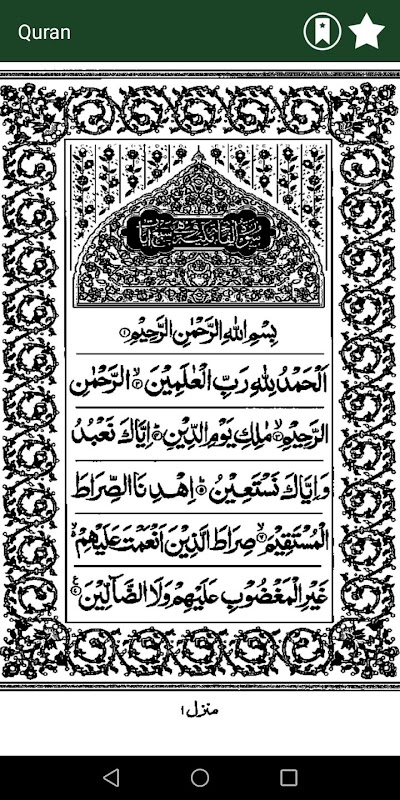 Quran
بِسْمِ اللهِ الرَّحْمٰنِ الرَّحِيْمِ ۝١
اَلْحَمْدُ لِلهِ رَبِّ الْعٰلَمِيْنَ ۝٢ الرَّحْمٰنِ
الرَّحِيْمِ ۝٣ مٰلِكِ يَوْمِ الدِّيْنِ ۝٤ اِيَّاكَ نَعْبُدُ
وَاِيَّاكَ نَسْتَعِيْنُ ۝٥ اِهْدِنَا الصِّرَاطَ
الْمُسْتَقِيْمَ ۝٦ صِرَاطَ الَّذِيْنَ اَنْعَمْتَ عَلَيْهِمْ
غَيْرِ الْمَغْضُوْبِ عَلَيْهِمْ وَلَا الضَّآلِّيْنَ ۝٧
منزل ١